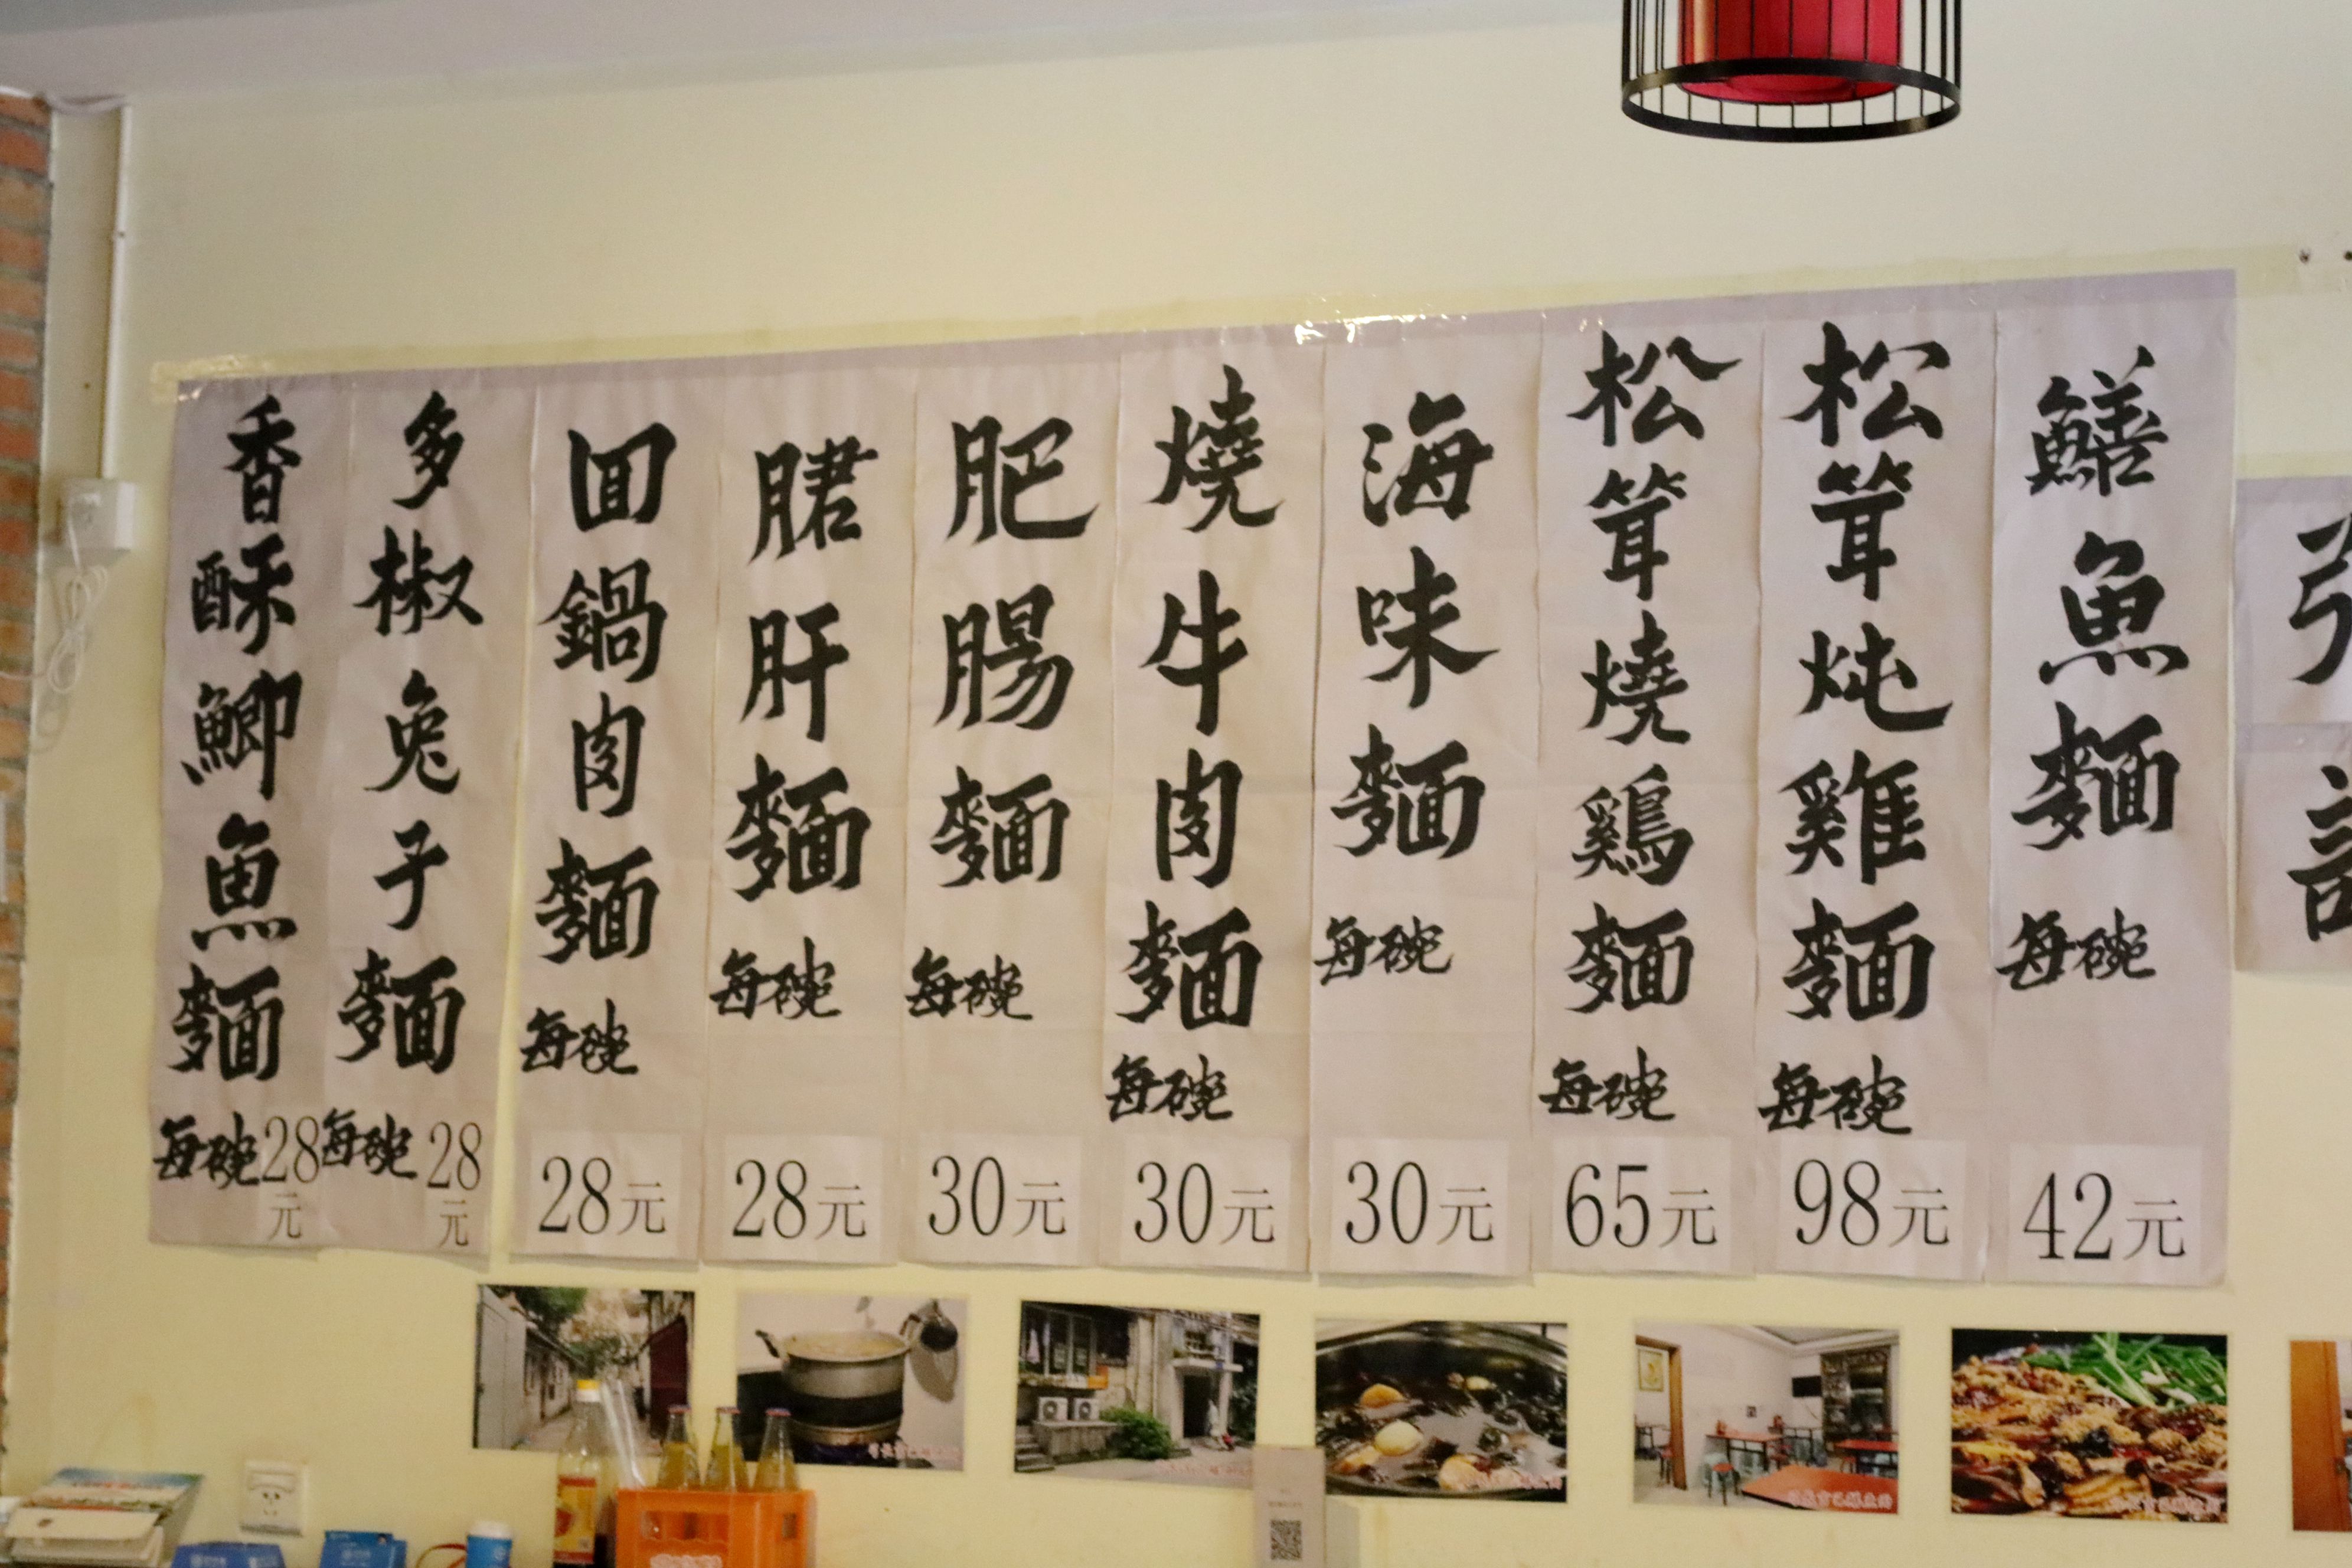 香酥鯽魚麵每碗28元
多椒兔子麵每碗28元
回鍋肉麵每碗28元
䐃肝麵每碗28元
肥腸麵每碗30元
燒牛肉麵每碗30元
海味麵每碗30元
松茸燒鷄麵每碗65元
松茸炖雞麵每碗98元
鱔魚麵每碗42元